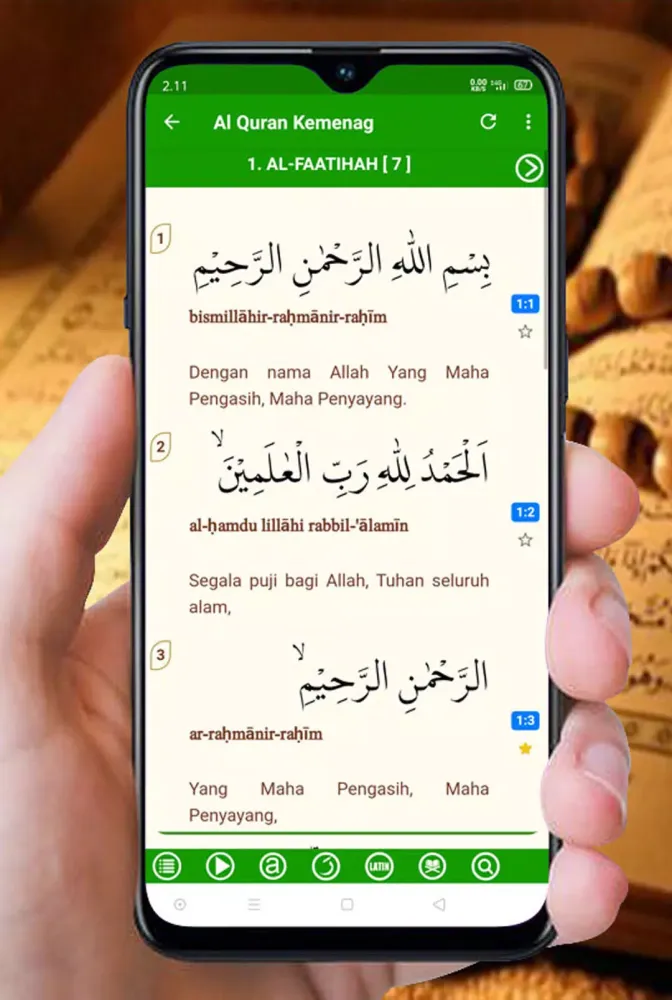 2.11
0.00
KB/S
67
Al Quran Kemenag
1. AL-FAATIHAH [ 7 ]
1
بِسْمِ اللّٰهِ الرَّحْمٰنِ الرَّحِيْمِ
1:1
bismillāhir-raḥmānir-raḥīm
Dengan nama Allah Yang Maha
Pengasih, Maha Penyayang.
2
اَلْحَمْدُ لِلّٰهِ رَبِّ الْعٰلَمِيْنَۙ
1:2
al-ḥamdu lillāhi rabbil-'ālamīn
Segala puji bagi Allah, Tuhan seluruh
alam,
3
الرَّحْمٰنِ الرَّحِيْمِۙ
1:3
ar-raḥmānir-raḥīm
Yang Maha Pengasih, Maha
Penyayang,
a
LATIN